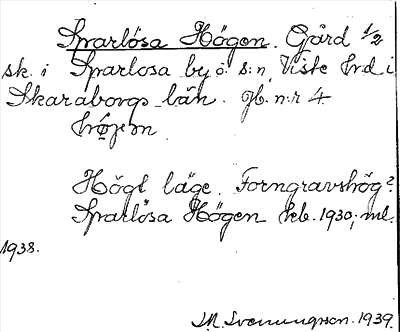 Sparlösa Högen. Gård 1/2
sk. i Sparlösa by o. s:n, Viste hrd i
Skaraborgs län. Jb. n:r 4
Högt läge. Forngravshög?
Sparlösa Högen kb. 1930; ml.
1938.
M. Svenungsson. 1939.